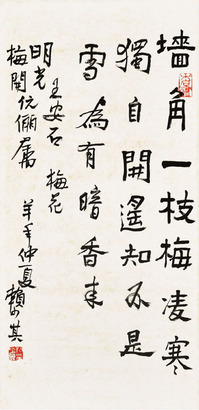 墙角一枝梅凌寒
獨自開遙知不是
雪為有暗香来
王安石 梅花
明光
梅閣伉儷屬
羊年仲夏賴少其